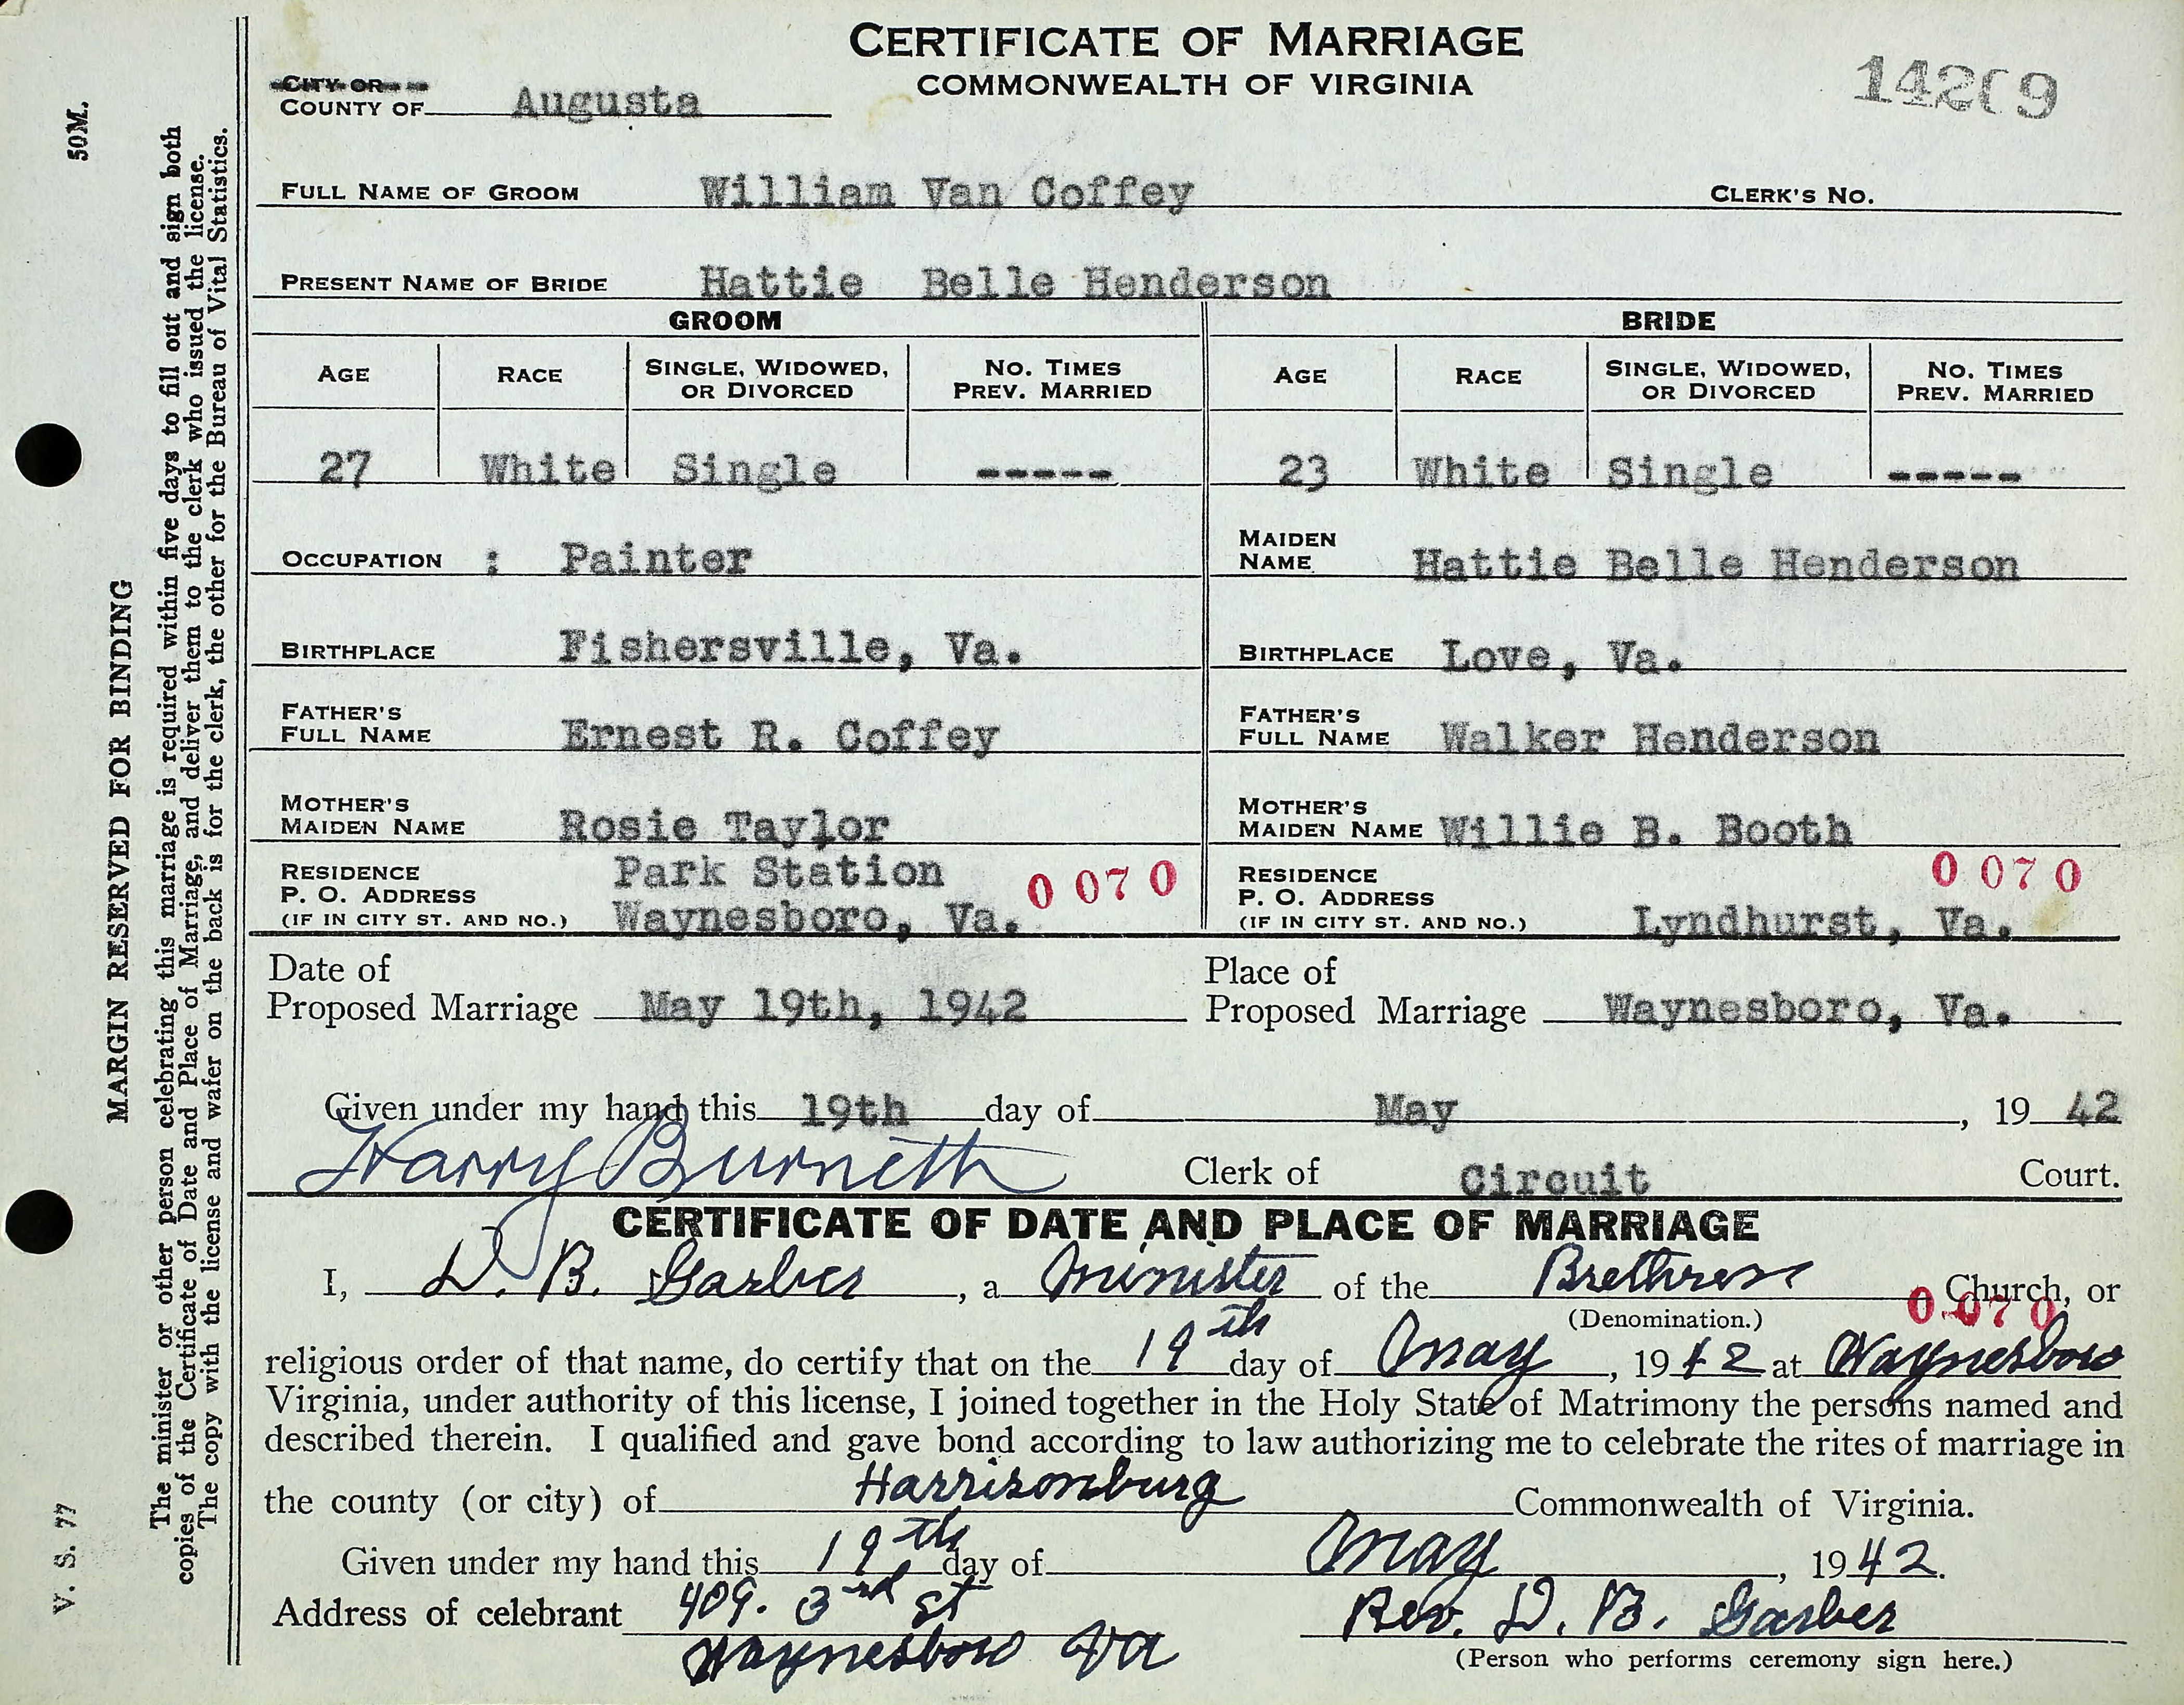 CERTIFICATE OF MARRIAGE
COMMONWEALTH OF VIRGINIA
CITY OR
COUNTY OF Augusta
FULL NAME OF GROOM William Van Coffey CLERK'S NO.
PRESENT NAME OF BRIDE Hattie Belle Henderson
GROOM BRIDE
AGE RACE SINGLE, WIDOWED, OR DIVORCED NO. TIMES PREV. MARRIED AGE RACE SINGLE, WIDOWED, OR DIVORCED NO. TIMES PREV. MARRIED
27 White Single ----- 23 White Single -----
OCCUPATION : Painter MAIDEN NAME Hattie Belle Henderson
BIRTHPLACE Fishersville, Va. BIRTHPLACE Love, Va.
FATHER'S FULL NAME Ernest R. Coffey FATHER'S FULL NAME Walker Henderson
MOTHER'S MAIDEN NAME Rosie Taylor MOTHER'S MAIDEN NAME Willie B. Booth
RESIDENCE Park Station 0 070 RESIDENCE 0 070
P. O. ADDRESS P. O. ADDRESS
(IF IN CITY ST. AND NO.) Waynesboro, Va. (IF IN CITY ST. AND NO.) Lyndhurst, Va.
Date of Place of
Proposed Marriage May 19th, 1942 Proposed Marriage Waynesboro, Va.
Given under my hand this 19th day of May, 19 42
Harry Burnett Clerk of Circuit Court.
CERTIFICATE OF DATE AND PLACE OF MARRIAGE
I, D. B. Garber, a Minister of the Brethren Church, or
(Denomination.) 0 070
religious order of that name, do certify that on the 19th day of May, 1942 at Waynesboro
Virginia, under authority of this license, I joined together in the Holy State of Matrimony the persons named and
described therein. I qualified and gave bond according to law authorizing me to celebrate the rites of marriage in
the county (or city) of Harrisonburg Commonwealth of Virginia.
Given under my hand this 19th day of May, 1942.
Address of celebrant 409. 3rd St Rev. D. B. Garber
Waynesboro Va (Person who performs ceremony sign here.)
V. S. 77 50M.
MARGIN RESERVED FOR BINDING
The minister or other person celebrating this marriage is required within five days to fill out and sign both
copies of the Certificate of Date and Place of Marriage, and deliver them to the clerk who issued the license.
The copy with the license and wafer on the back is for the clerk, the other for the Bureau of Vital Statistics.